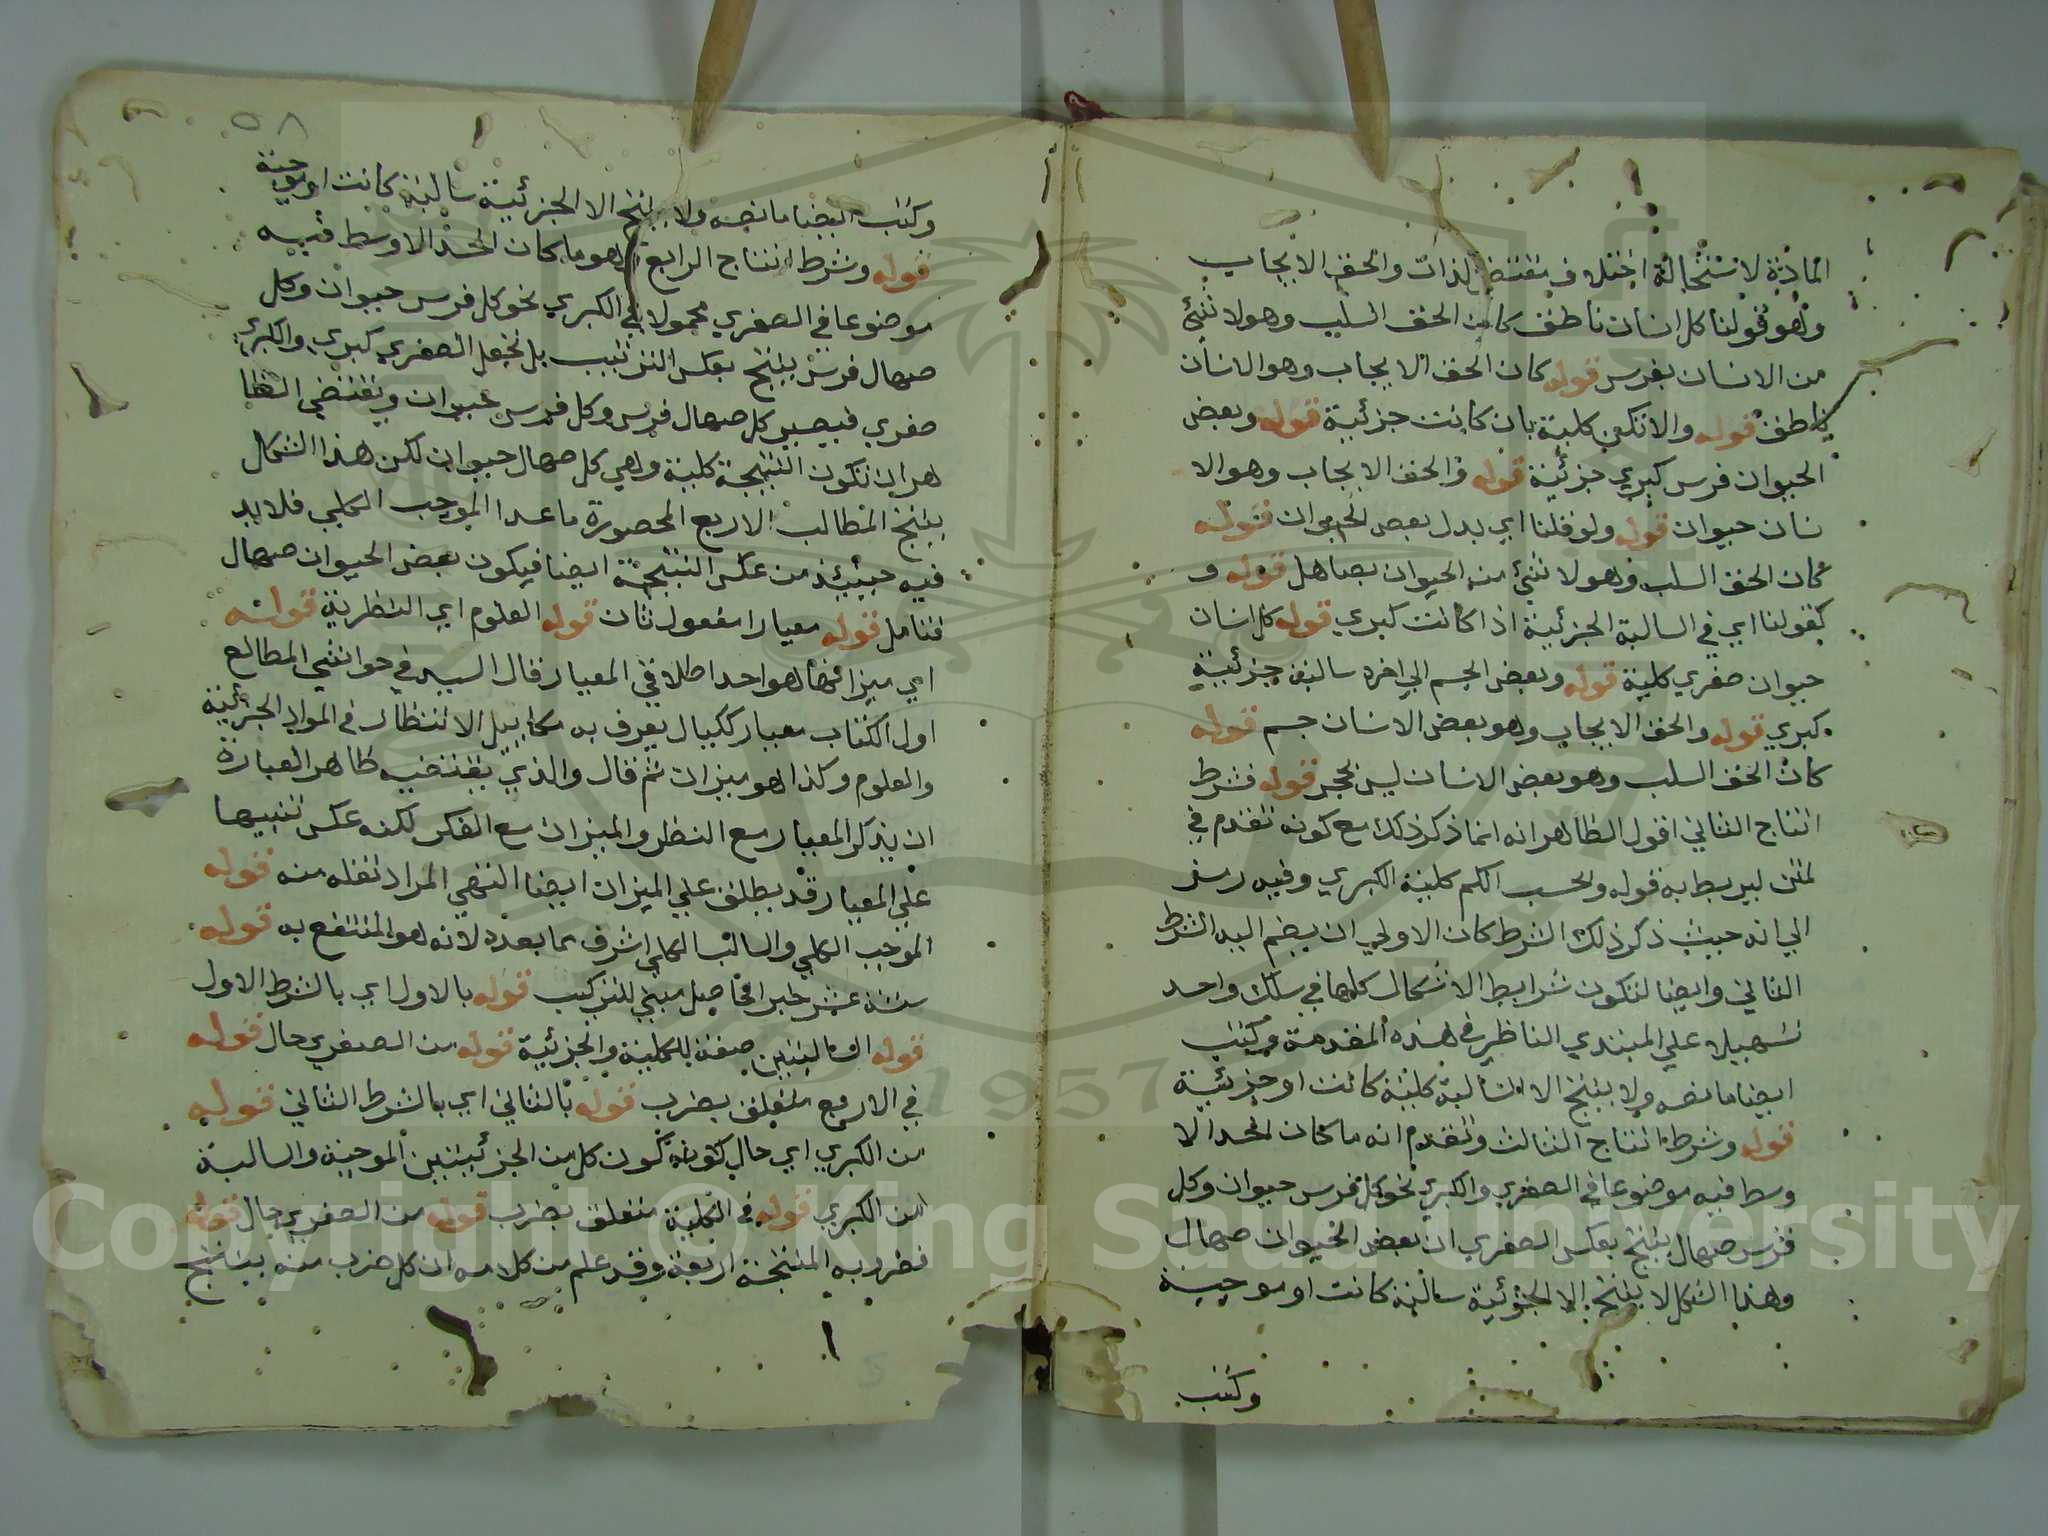 المادة لاستحالة اختلاف مقتضى لذات والحق الايجاب
وهو قولنا كل انسان ناطق كان الحق السلب وهو لا شئ
من الانسان بفرس قوله كان الحق الايجاب وهو الانسان
ناطق قوله والا تكن كلية بان كانت جزئية قوله وبعض
الحيوان فرس كبري جزئية قوله والحق الايجاب وهو الا
نسان حيوان قوله ولو قلنا اي بدل بعض الحيوان قوله
كان الحق السلب وهو لا شئ من الحيوان بصاهل قوله و
كقولنا اي في السالبة الجزئية اذا كانت كبري قوله كل انسان
حيوان صغري كلية قوله وبعض الجسم الي اخره سالبة جزئية
كبري قوله والحق الايجاب وهو بعض الانسان جسم قوله
كان الحق السلب وهو بعض الانسان ليس بحجر قوله فشرط
انتاج الثاني اقول الظاهر انه انما ذكر ذلك مع كونه تقدم في
المتن ليربط به قوله وبحسب الكم كلية الكبري وفيه رمز
الي انه حيث ذكر ذلك الشرط كان الاولي ان يضم اليه الشرط
الثاني وايضا لتكون شرايط الاشكال كلها في سلك واحد
تسهيلا علي المبتدي الناظر في هذه المقدمة وكتب
ايضا ما نصه ولا ينتج الا السالبة كلية كانت او جزئية
قوله وشرط انتاج الثالث وتقدم انه ما كان الحد الا
وسط فيه موضوعا في الصغري والكبري نحو كل فرس حيوان وكل
فرس صهال ينتج بعكس الصغري ان بعض الحيوان صهال
وهذا الشكل لا ينتج الا الجزئية سالبة كانت او موجبة
وكتب
٥٨
وكتب ايضا ما نصه ولا ينتج الا الجزئية سالبة كانت او موجبة
قوله وشرط انتاج الرابع وهو ما كان الحد الاوسط فيه
موضوعا في الصغري محمولا في الكبري نحو كل فرس حيوان وكل
صهال فرس ينتج بعكس الترتيب بل نجعل الصغري كبري والكبري
صغري فيصير كل صهال فرس وكل فرس حيوان ويقتضي الظا
هر ان تكون النتيجة كلية وهي كل صهال حيوان لكن هذا الشكل
ينتج المطالب الاربع المحصورة ما عدا الموجب الكلي فلا بد
فيه حينئذ من عكس النتيجة ايضا فيكون بعض الحيوان صهال
فتامل قوله معيارا مفعول ثان قوله العلوم اي النظرية قوله
اي ميزانها هو احد اطلاقي المعيار قال السيد في حواشي المطالع
اول الكتاب معيار ككيال يعرف به مكاييل الانتظار في المواد الجزئية
والعلوم وكذا هو ميزان ثم قال والذي يقتضيه ظاهر العبارة
ان يذكر المعيار مع النظر والميزان مع الفكر لكنه عكس تنبيها
علي المعيار قد يطلق علي الميزان ايضا انتهي المراد نقله منه قوله
الموجب الكلي والسالب الكلي اشرف مما بعده لانه هو المنتفع به قوله
ستة عشر خبرا فحاصل مبني للتركيب قوله بالاول اي بالشرط الاول
قوله السالبتين صفة للكلية والجزئية قوله من الصغري حال قوله
في الاربع متعلق بضرب قوله بالثاني اي بالشرط الثاني قوله
من الكبري اي حال كونه تكون كل من الجزئيتين الموجبة والسالبة
من الكبري قوله في الكلية متعلق بضرب قوله من الصغري حال قوله
فضروبه المنتجة اربعة وقد علم من كلامه ان كل ضرب منه ينتج